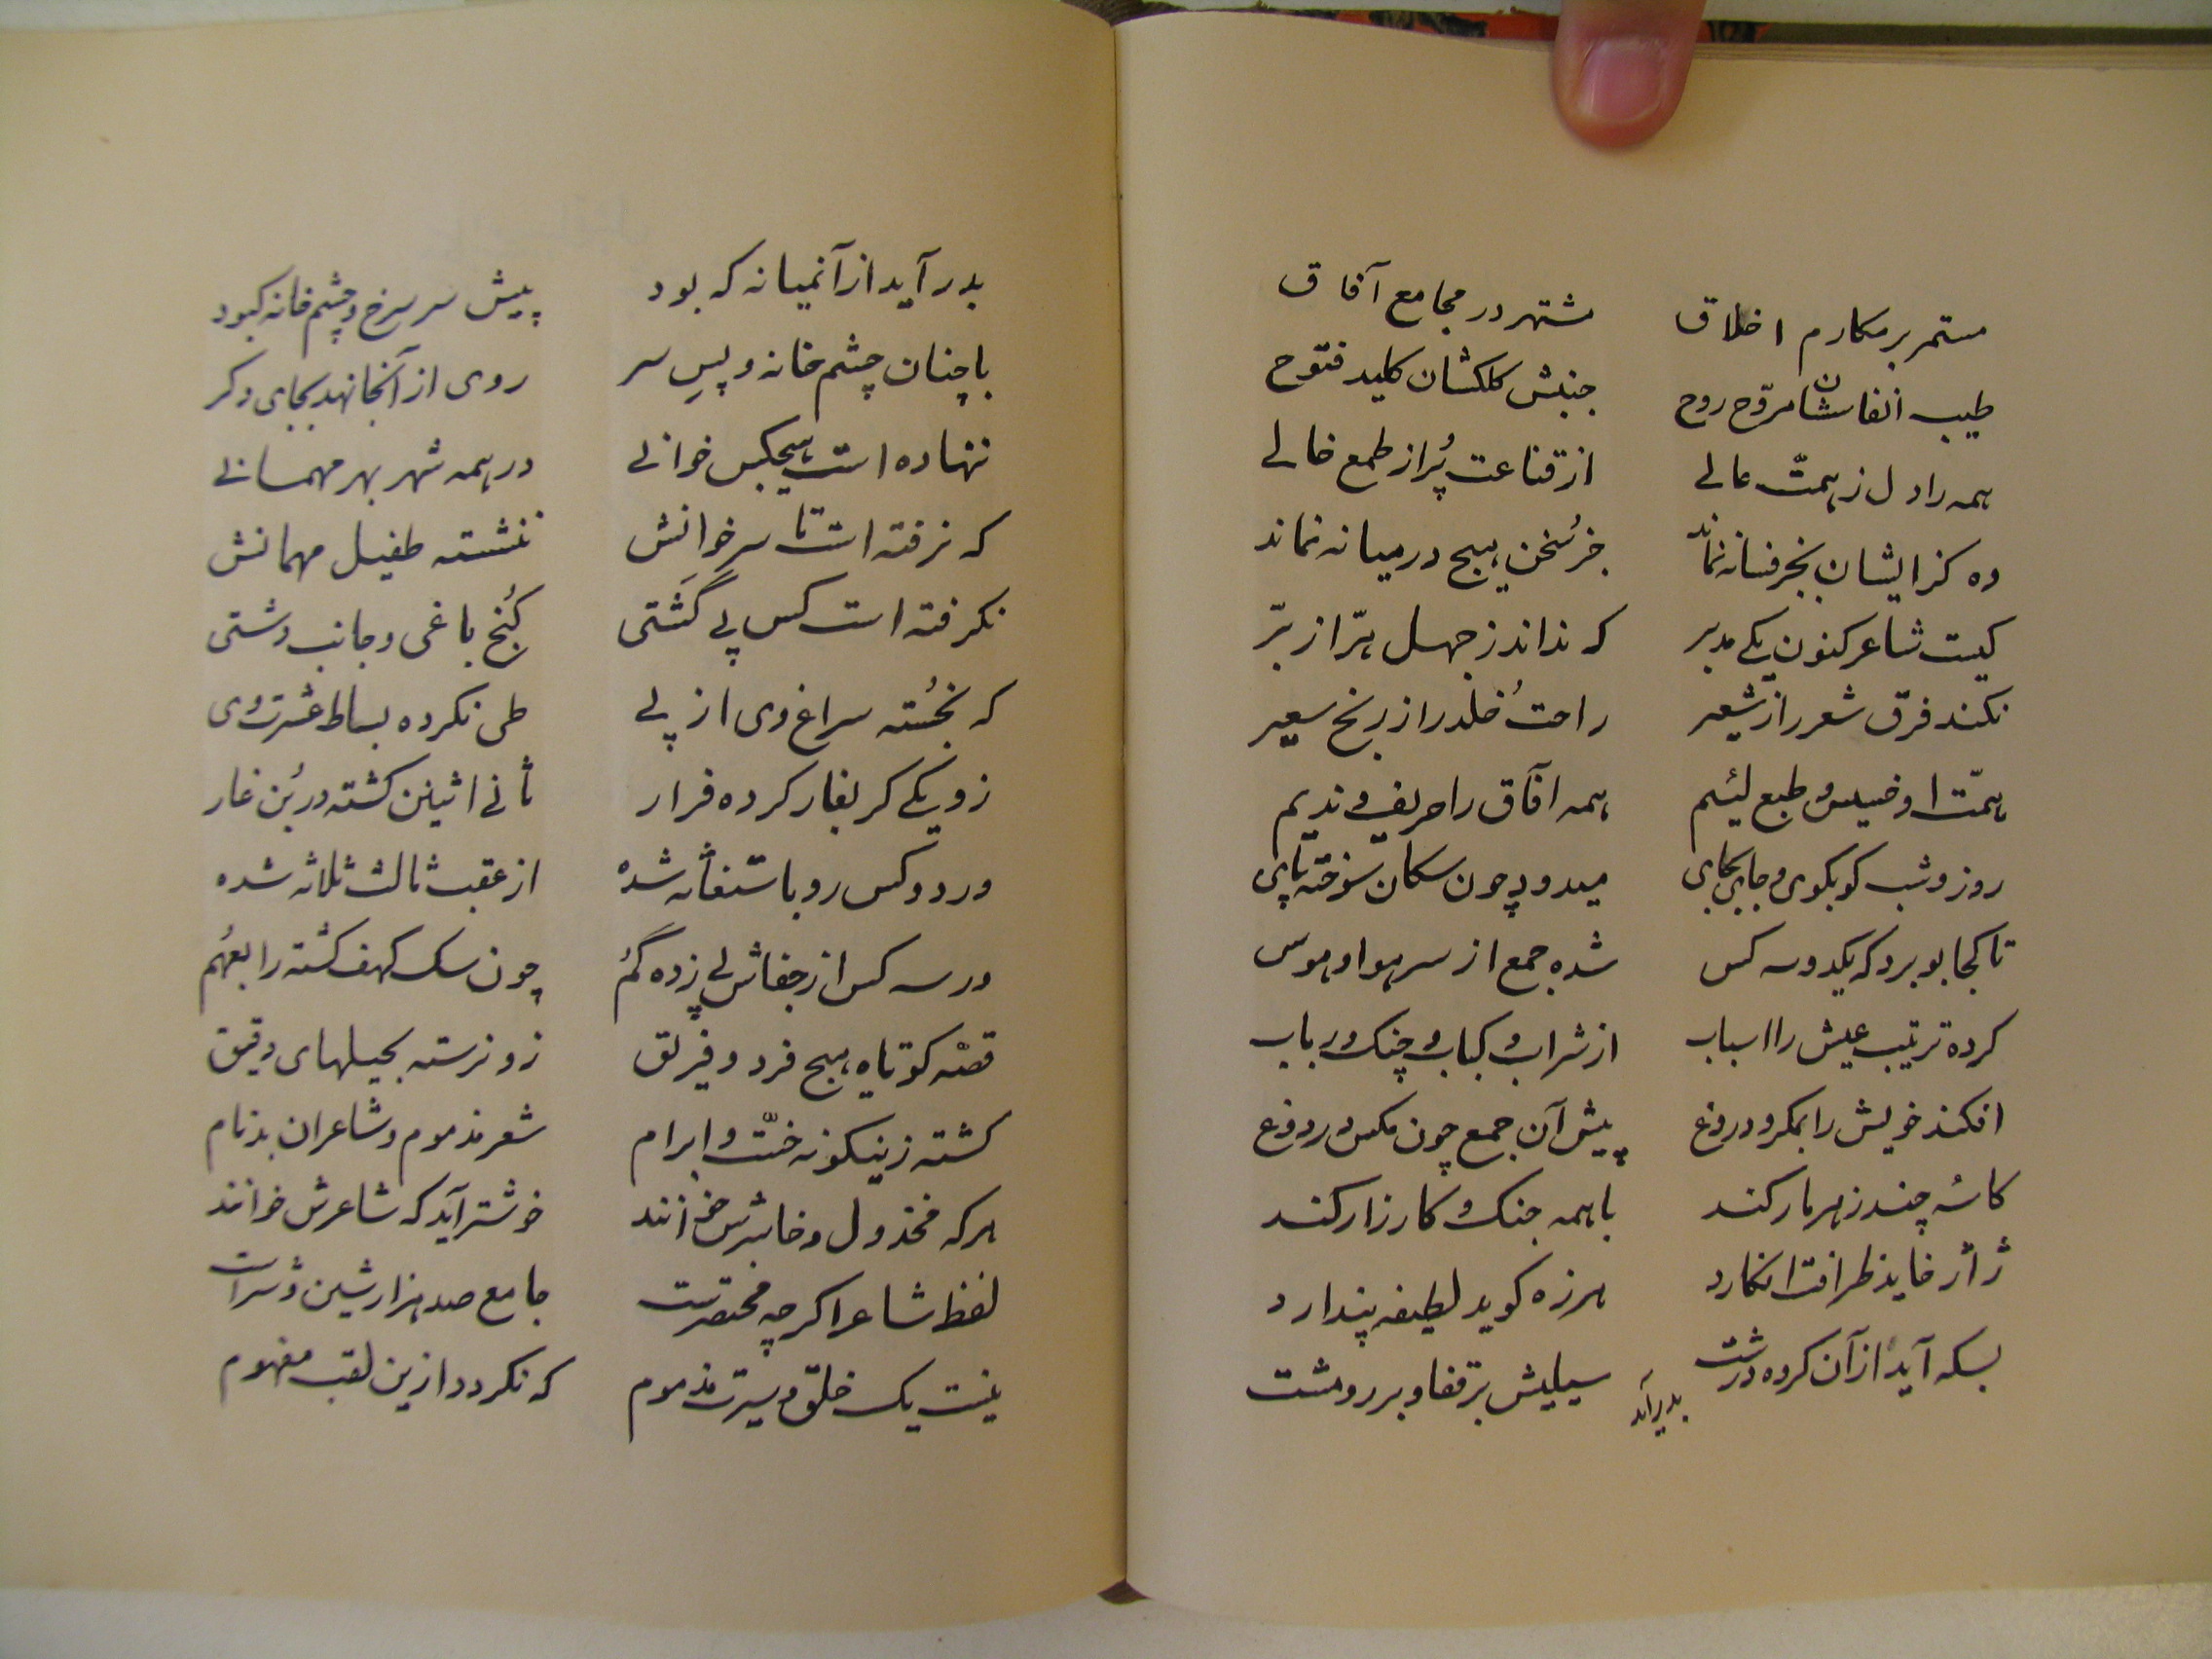 مستمر بر مکارم اخلاق مشتهر در مجامع آفاق
طیب انفاسشان مروّح روح جنبش کلکشان کلید فتوح
همه را دل ز همّت عالے از قناعت پُر از طمع خالے
ده کز ایشان بجز فسانه نماند جز سُخن هیچ در میانه نماند
کیست شاعر کنون یکے مدبر که نداند ز جهل هرّ از برّ
نکند فرق شعر را ز شعیر راحت خُلد را ز رنج سعیر
همّت او خسیس و طبع لئیم همه آفاق را حریف و ندیم
روز و شب کو بکوی و جای بجای میدود چون سکان سوخته پای
تا کجا بو برد که یکدو سه کس شده جمع از سر هوا و هوس
کرده ترتیب عیش را اسباب از شراب و کباب و چنک و رباب
افکند خویش را بمکر و دروغ پیش آن جمع چون مکس در دوغ
کاسُه چند زهر مار کند با همه جنک و کارزار کند
ژاژ خاید ظرافت انکارد هرزه کوید لطیفه پندارد
بسکه آید از آن کروه درشت سیلیش بر قفا و بر رو مشت
بدر آید
بدر آید از آنمیانه که بود پیش سر سرخ و چشم خانه کبود
با چنان چشم خانه و پسِ سر روی از آنجا نهد بجای دکر
ننهاده است هیچکس خوانے در همه شهر بهر مهمانے
که نرفته است تا سر خوانش ننشسته طفیل مهمانش
نکرفته است کس پے گَشتی کُنج باغی و جانب دشتی
که نجُسته سراغ وی از پے طی نکرده بساط عشرت وی
زو یکے کر بغار کرده فرار ثانے اثنین کشته در بُن غار
ور دو کس رو باستغاثه شده از عقب ثالث ثلاثه شده
ور سه کس از جفاش پے زده گُم چون سک کهف کشته رابعهُم
قصّه کوتاه هیچ فرد و فریق زو نرسته بحیلهای دقیق
کشته زینکونه خسّت و ابرام شعر مذموم و شاعران بدنام
هر که مخذول و خاسرش خوانند خوشتر آید که شاعرش خوانند
لفظ شاعر اکر چه مختصرست جامع صد هزار شین و شرست
نیست یک خلق و سیرت مذموم که نکردد ازین لقب مفهوم